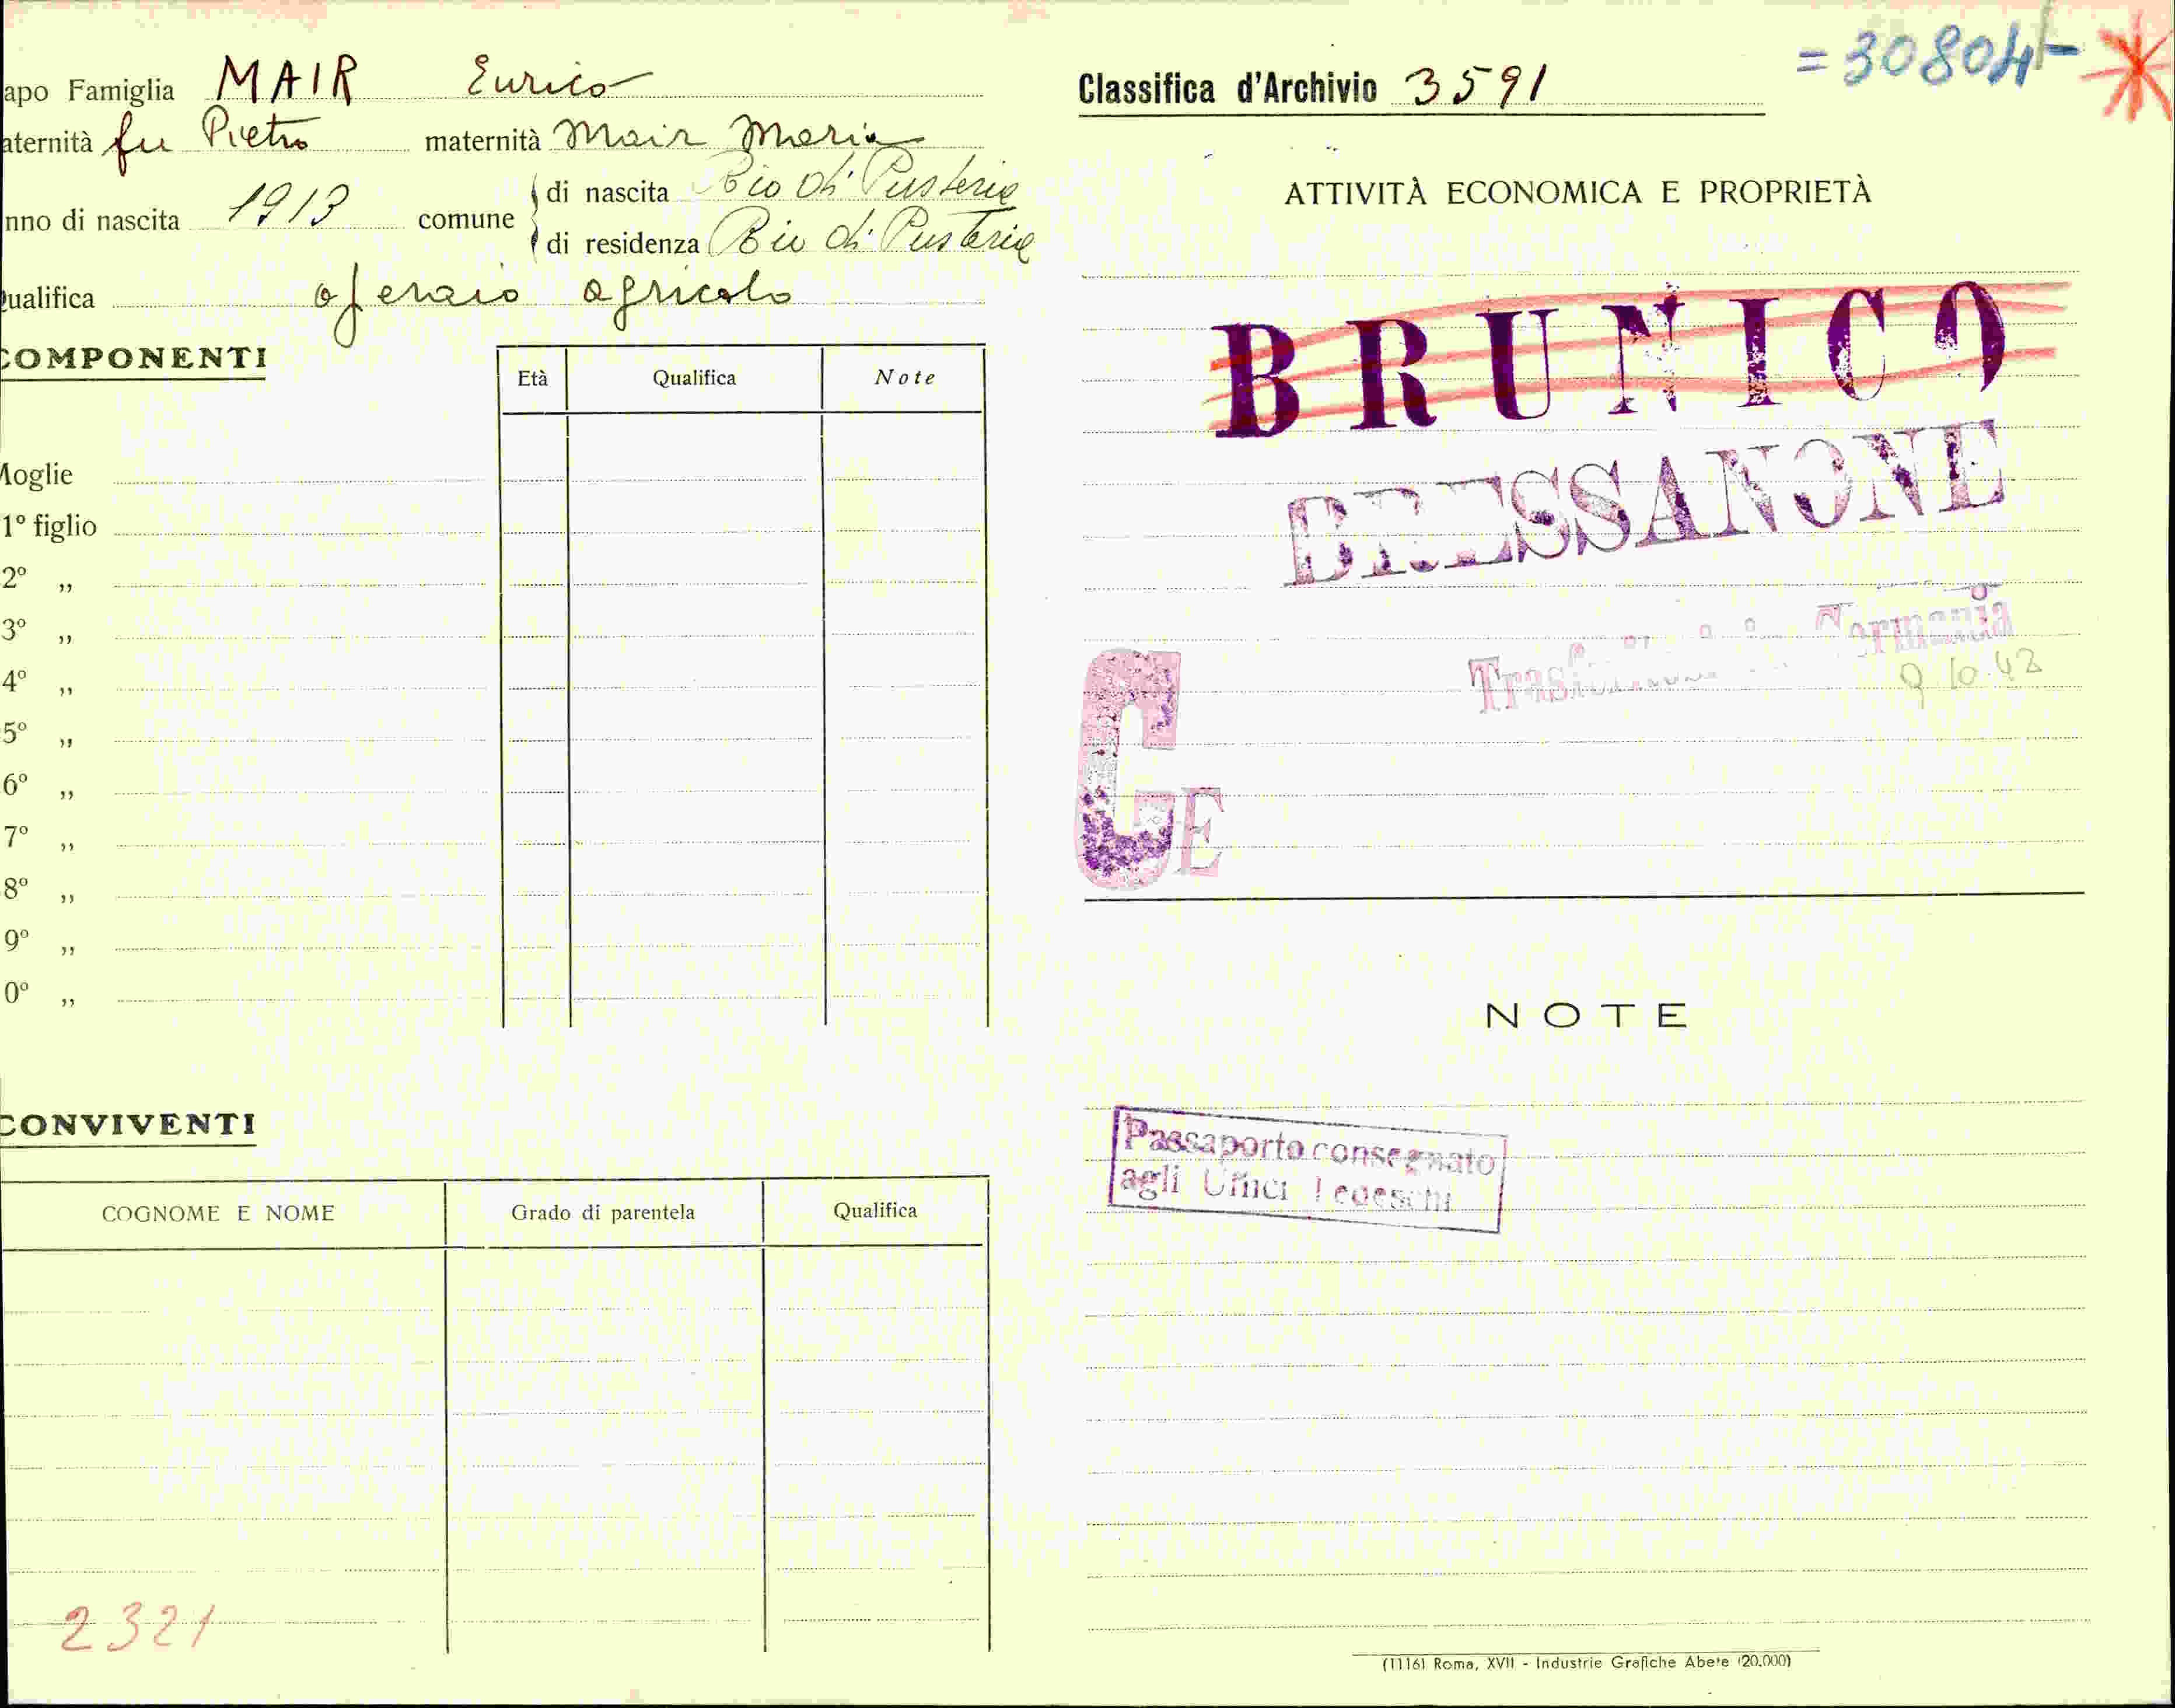 apo Famiglia MAIR Enrico
aternità fu Pietro maternità Mair Maria
nno di nascita 1913 comune di nascita Rio di Pusteria
di residenza Rio di Pusteria
Qualifica operaio agricolo
COMPONENTI
Età Qualifica Note
Moglie
1° figlio
2° „
3° „
4° „
5° „
6° „
7° „
8° „
9° „
0° „
CONVIVENTI
COGNOME E NOME Grado di parentela Qualifica
2321
= 30804 -
Classifica d'Archivio 3591
ATTIVITÀ ECONOMICA E PROPRIETÀ
BRUNICO
BRESSANONE
Germania
9 10.42
GE
NOTE
Passaporto consegnato
agli Uffici Tedeschi
(1116) Roma, XVII - Industrie Grafiche Abete (20.000)